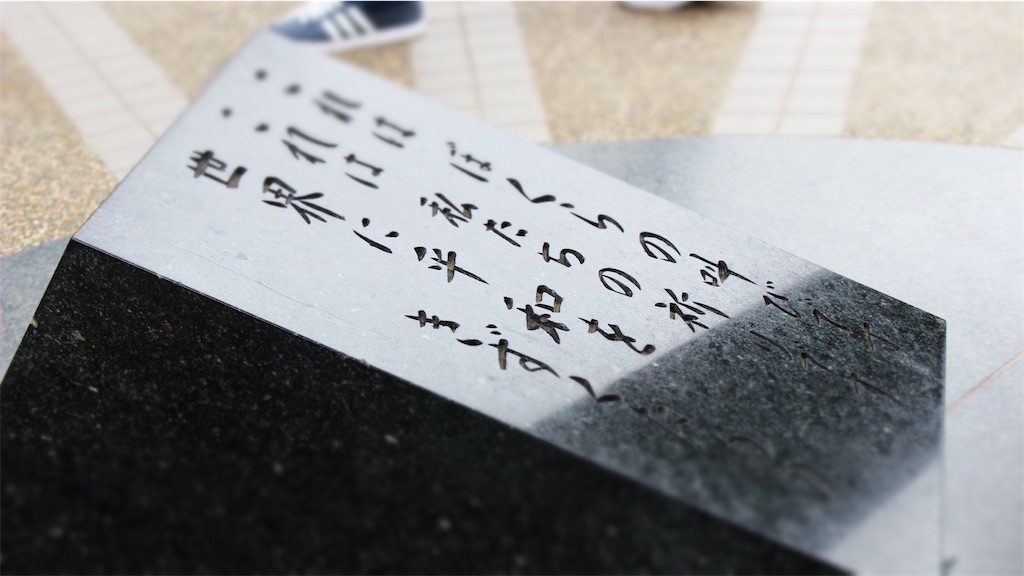 これはぼくらの叫びです
これは私たちの祈りです
世界に平和を
きずく